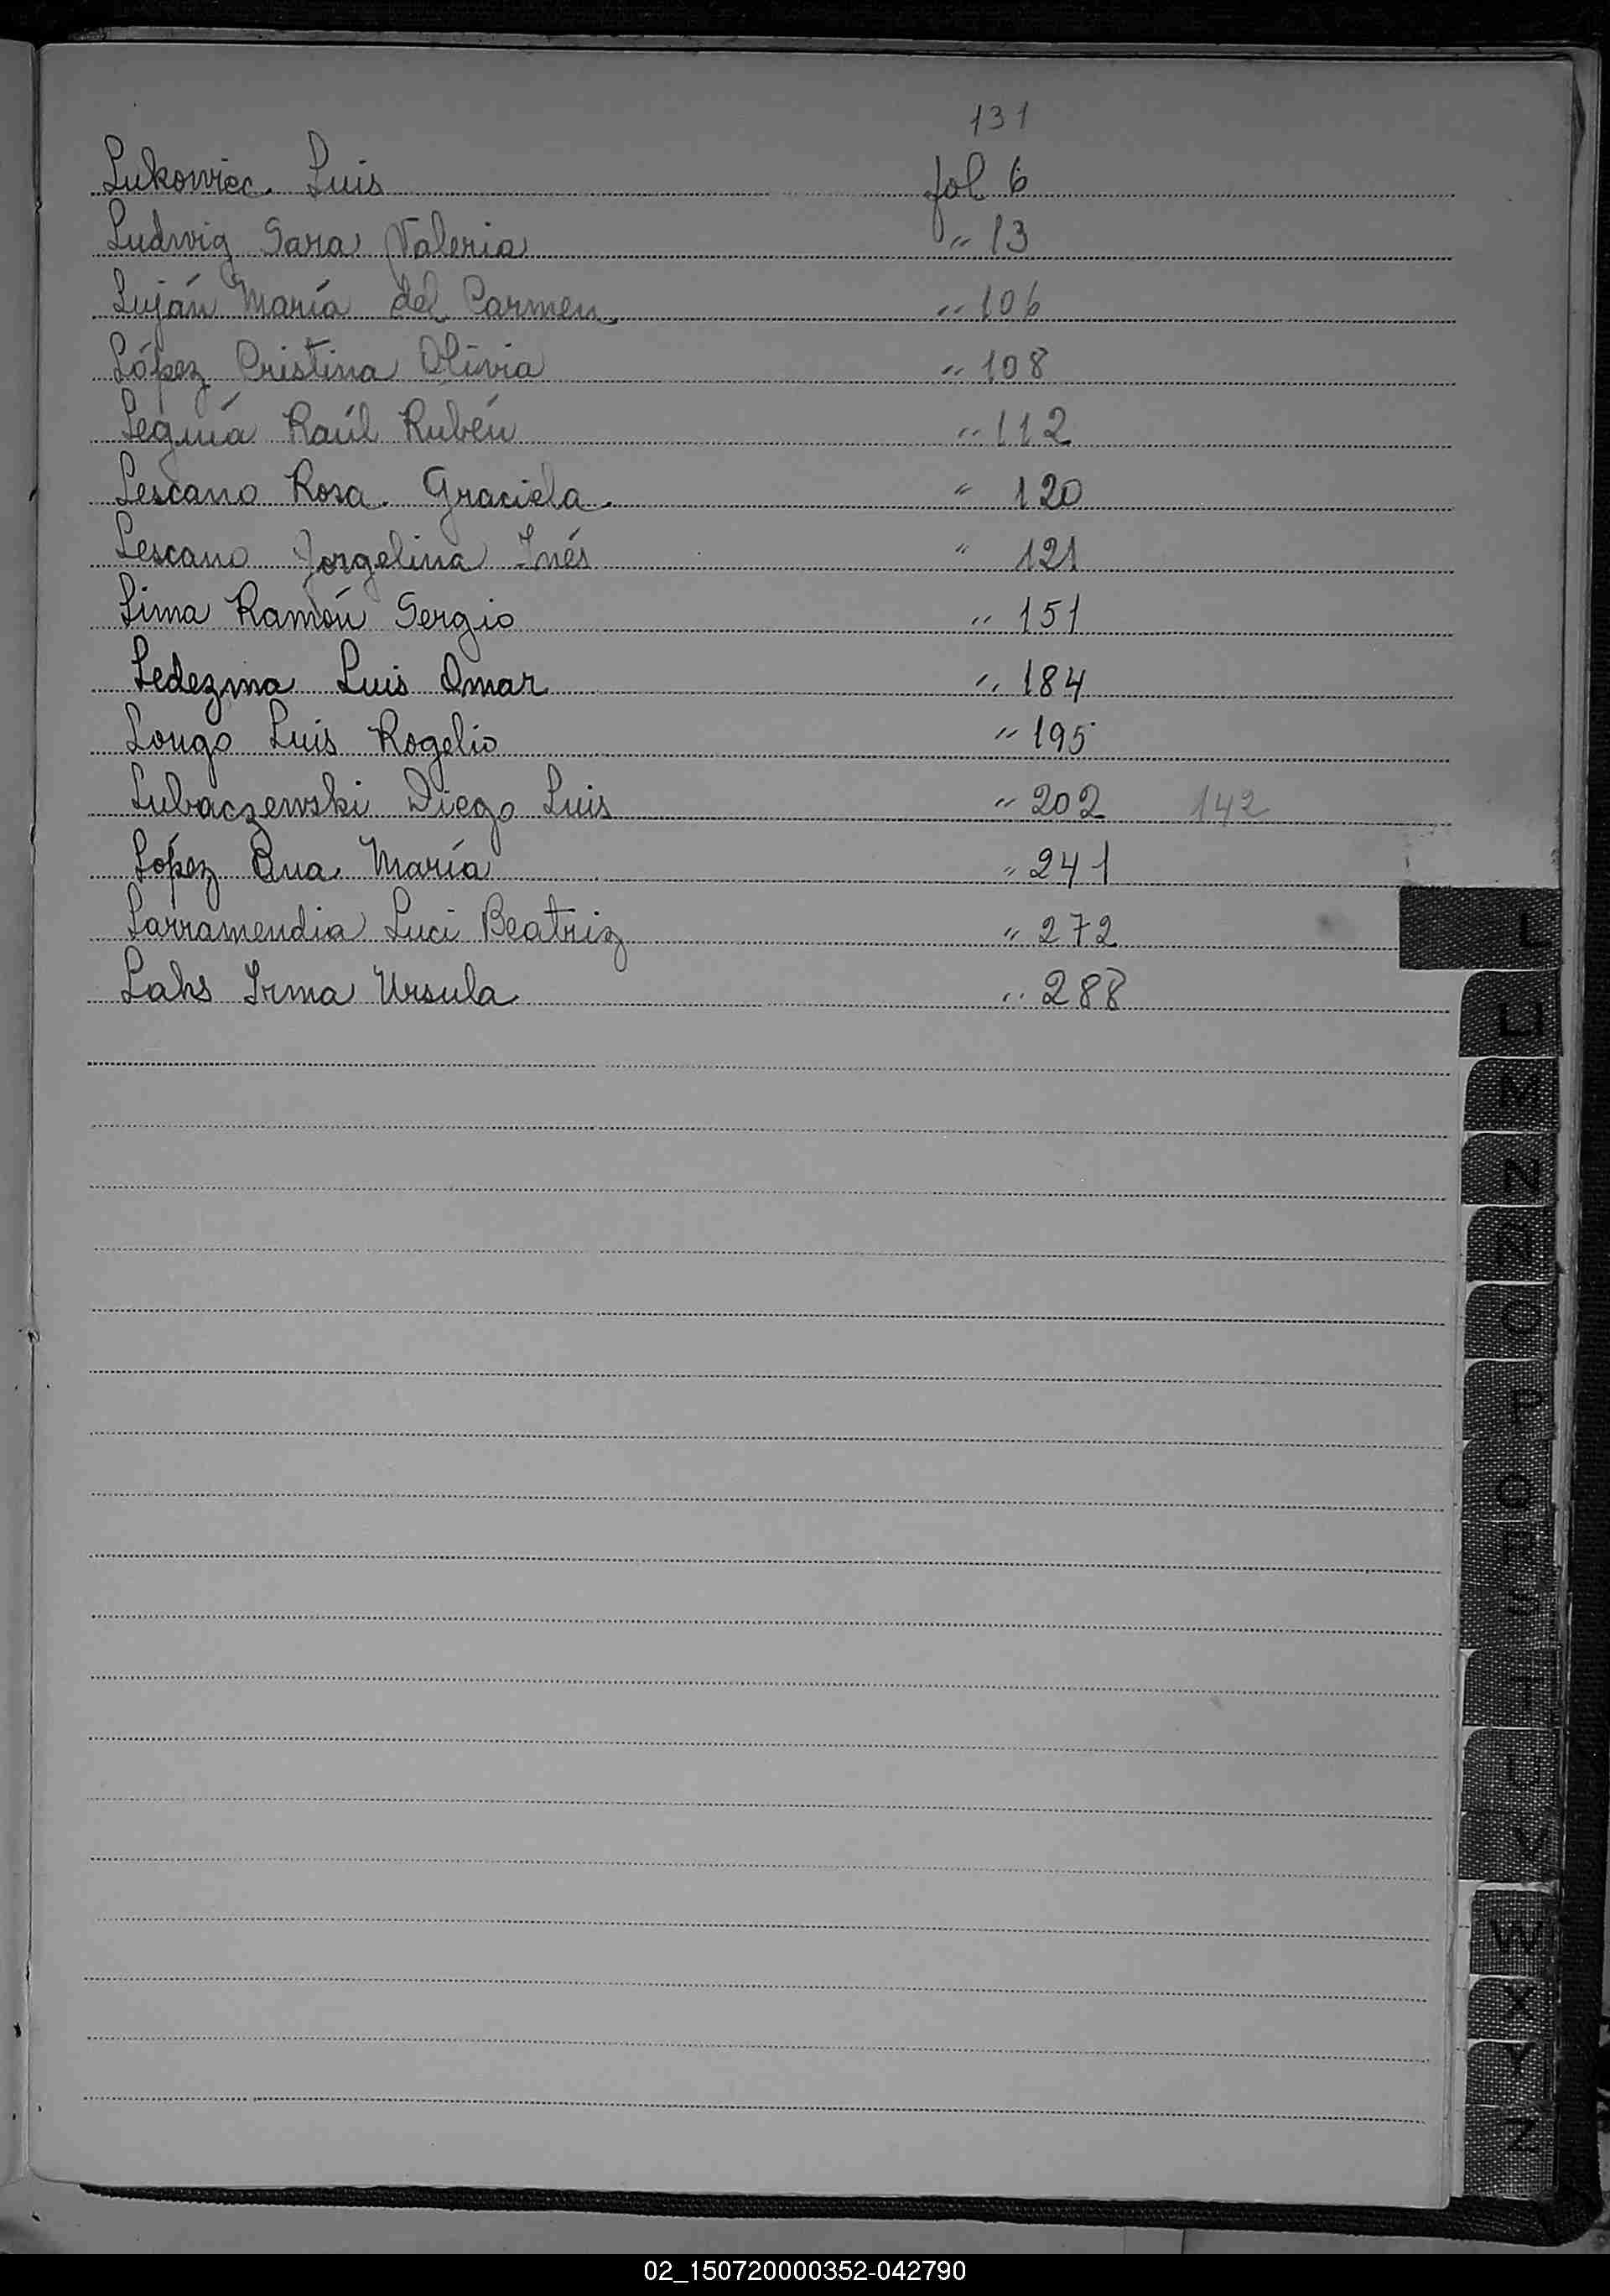 131
Lukowiec. Luis fol 6
Ludwig Sara Valeria " 13
Luján María del Carmen " 106
López Cristina Olivia " 108
Leguía Raúl Rubén " 112
Lescano Rosa. Graciela. " 120
Lescano Jorgelina Inés " 121
Lima Ramón Sergio " 151
Ledezma Luis Omar " 184
Longo Luis Rogelio " 195
Lubaczewski Diego Luis " 202 142
López Ana María " 241
Larramendia Luci Beatriz " 272
Lahs Irma Ursula " 288
L
LL
M
N
Ñ
O
P
Q
R
S
T
U
V
W
X
Y
Z
02_150720000352-042790